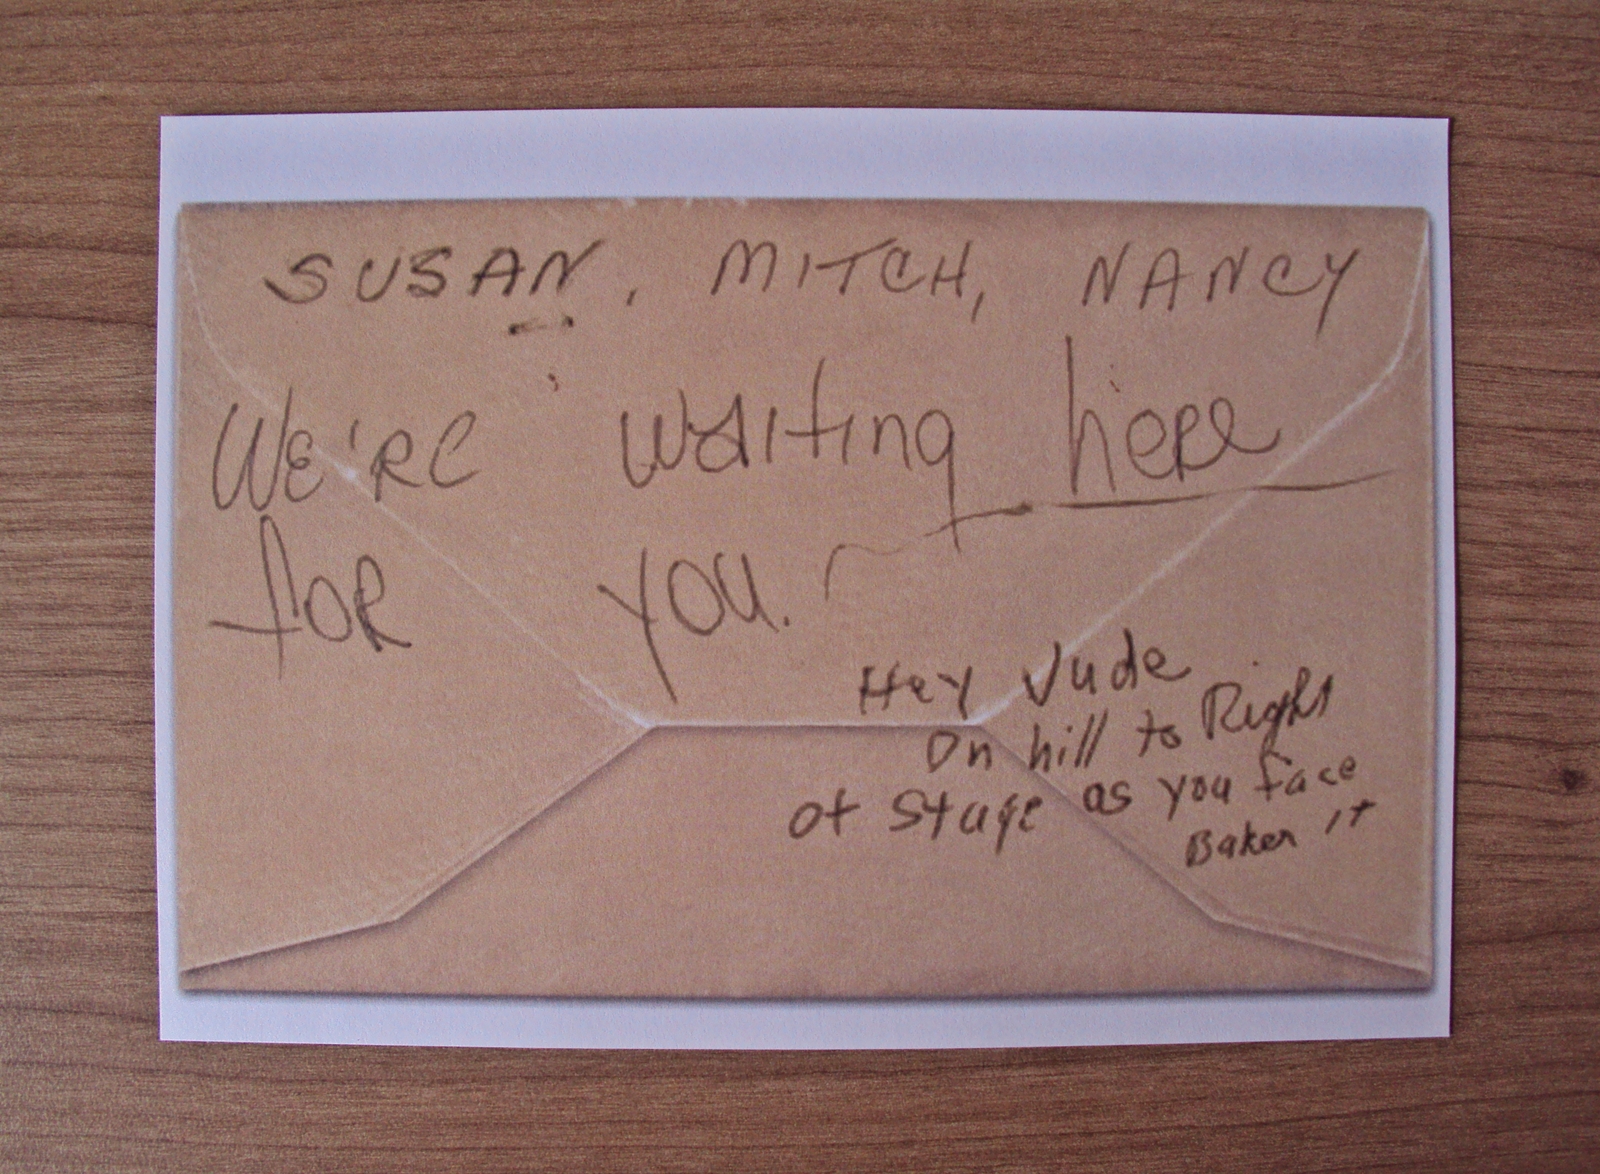 SUSAN, MITCH, NANCY
WE'RE waiting here
FOR YOU.
Hey Jude
On hill to Right
of stage as you face it
Baker